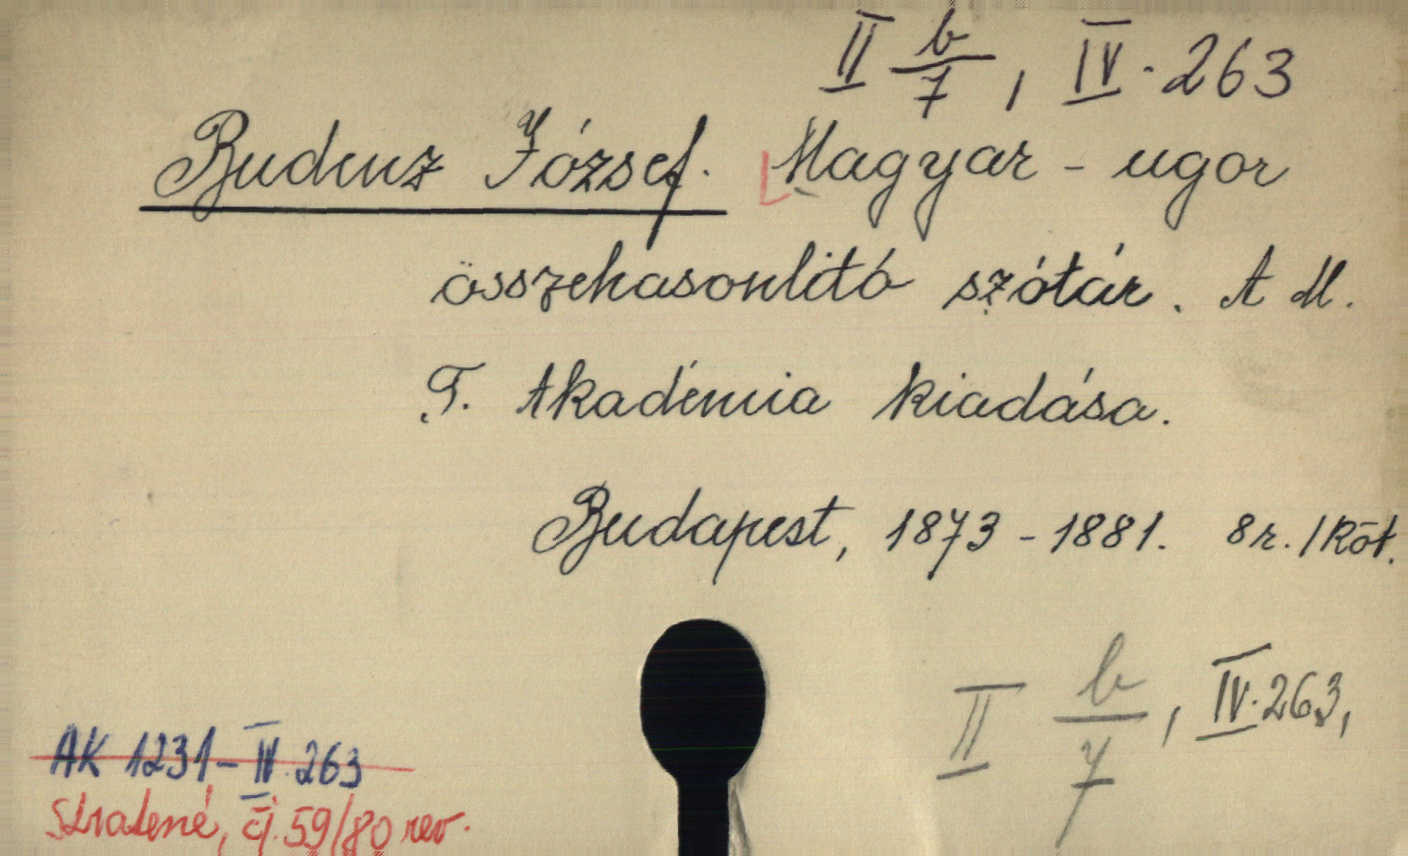 II b/7, IV. 263
Budenz József. Magyar - ugor
összehasonlító szótár. A M.
T. Akadémia kiadása.
Budapest, 1873 - 1881. 8r. 1 köt.
II b/7, IV. 263,
AK 1231 - IV. 263
Stratené, čj. 59/80 rev.